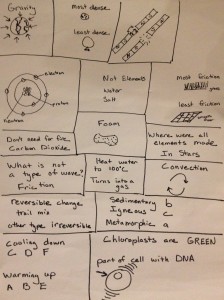 Gravity
most dense
least dense
neutron
proton
electron
Not Elements
Water
Salt
most friction
grass
least friction
Don't need for fire
Carbon Dioxide
Foam
Where were all
elements made
In Stars
What is not
a type of wave?
Friction
Heat water
to 100°C
Turns into a
gas
Convection
reversible change
trail mix
other type irreversible
Sedimentary b
Igneous c
Metamorphic a
cooling down
C D F
Warming up
A B E
Chloroplasts are GREEN
part of cell with DNA